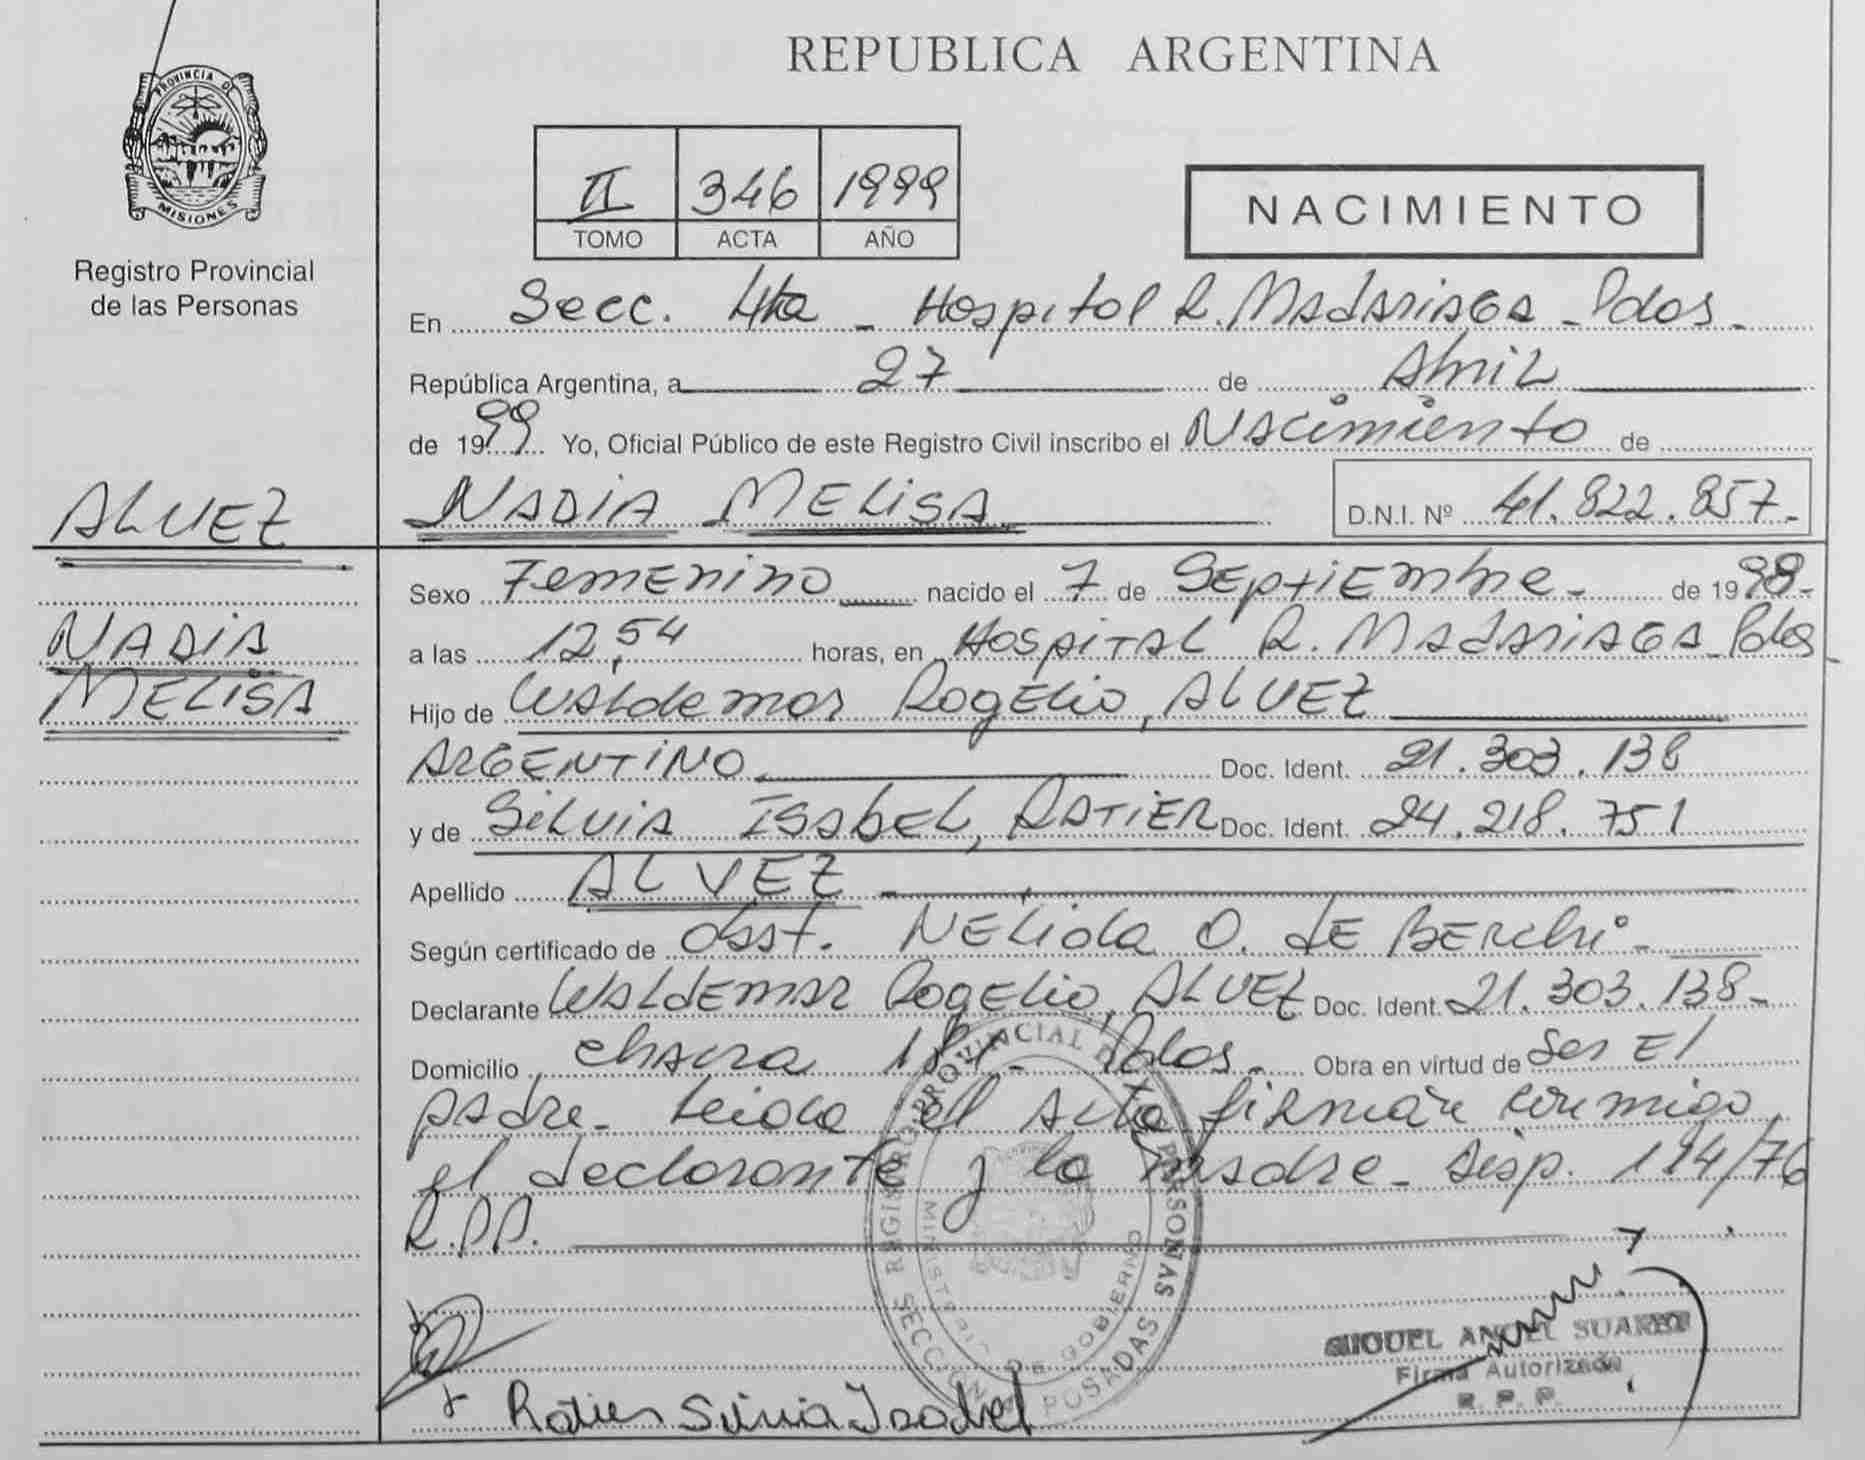 PROVINCIA DE
MISIONES
Registro Provincial
de las Personas
ALVEZ
NADIA
MELISA
REPUBLICA ARGENTINA
II 346 1999
TOMO ACTA AÑO
NACIMIENTO
En Secc. 4ta - Hospital R. Madariaga - Pdas.
República Argentina, a 27 de Abril
de 1999 Yo, Oficial Público de este Registro Civil inscribo el Nacimiento de
NADIA MELISA D.N.I. Nº 41.822.857.-
Sexo Femenino nacido el 7 de Septiembre - de 1998.-
a las 12,54 horas, en Hospital R. Madariaga - Pdas -
Hijo de Waldemar Rogelio, ALVEZ
ARGENTINO Doc. Ident. 21.303.138
y de Silvia Isabel, RATIER Doc. Ident. 24.218.751
Apellido ALVEZ
Según certificado de Obst. Nelida O. de Berchi -
Declarante Waldemar Rogelio, ALVEZ Doc. Ident. 21.303.138-
Domicilio Chacra Pdas. Obra en virtud de Ser El
padre. Leida el Acta firman conmigo
el declarante y la madre - Disp. 194/76
R.P.P.
REGISTRO PROVINCIAL DE LAS PERSONAS
MINISTERIO DE GOBIERNO
SECCION POSADAS
MIGUEL ANGEL SUAREZ
Firma Autorizada
R. P. P.
Ratier Silvia Isabel